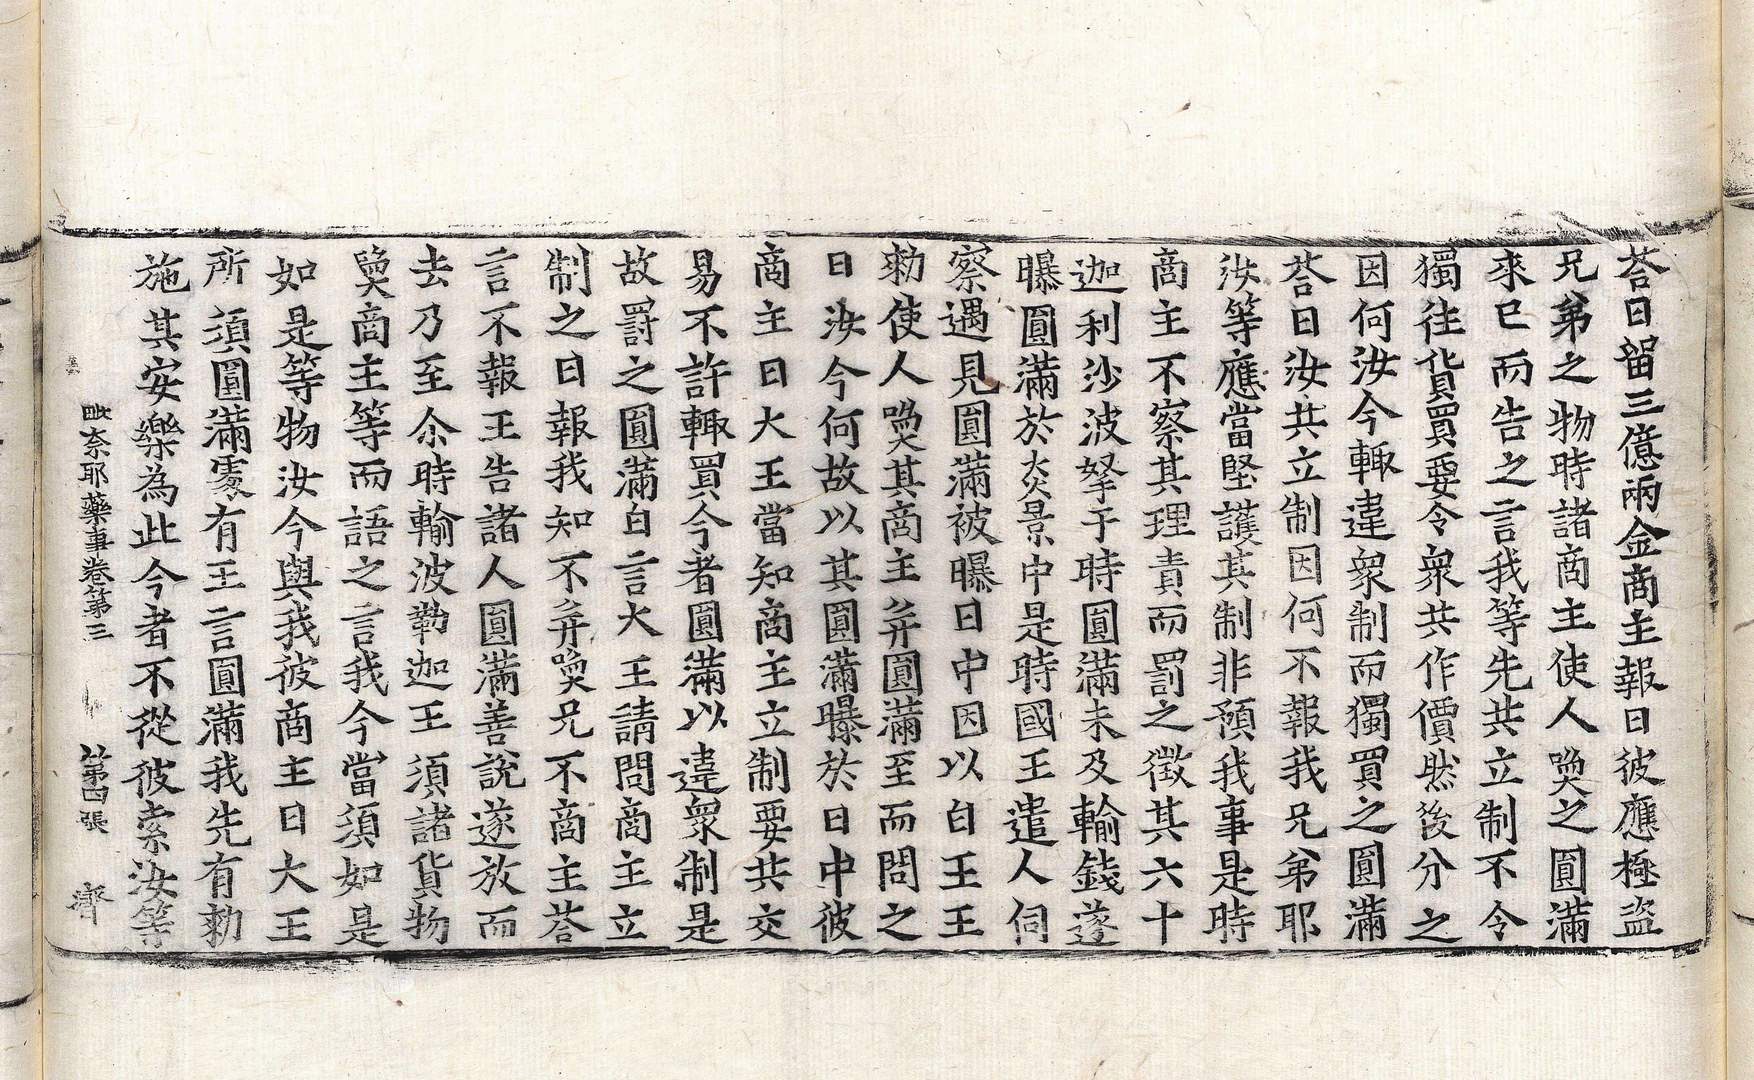 荅曰留三億兩金商主報曰彼應極盜
兄弟之物時諸商主使人喚之圓滿
來已而告之言我等先共立制不令
獨往貨買要令衆共作價然後分之
因何汝今輙違衆制而獨買之圓滿
荅曰汝共立制因何不報我兄弟耶
汝等應當堅護其制非預我事是時
商主不察其理責而罰之徵其六十
迦利沙波拏于時圓滿未及輸錢遂
曝圓滿於炎景中是時國王遣人伺
察遇見圓滿被曝日中因以白王王
勑使人喚其商主并圓滿至而問之
曰汝今何故以其圓滿曝於日中彼
商主曰大王當知商主立制要共交
易不許輙買今者圓滿以違衆制是
故罰之圓滿白言大王請問商主立
制之日報我知不并喚兄不商主荅
言不報王告諸人圓滿善說遂放而
去乃至余時輸波勒迦王須諸貨物
喚商主等而語之言我今當須如是
如是等物汝今與我彼商主曰大王
所須圓滿處有王言圓滿我先有勑
施其安樂為此今者不從彼索汝等
毗奈耶藥事卷第三 第四張 濟